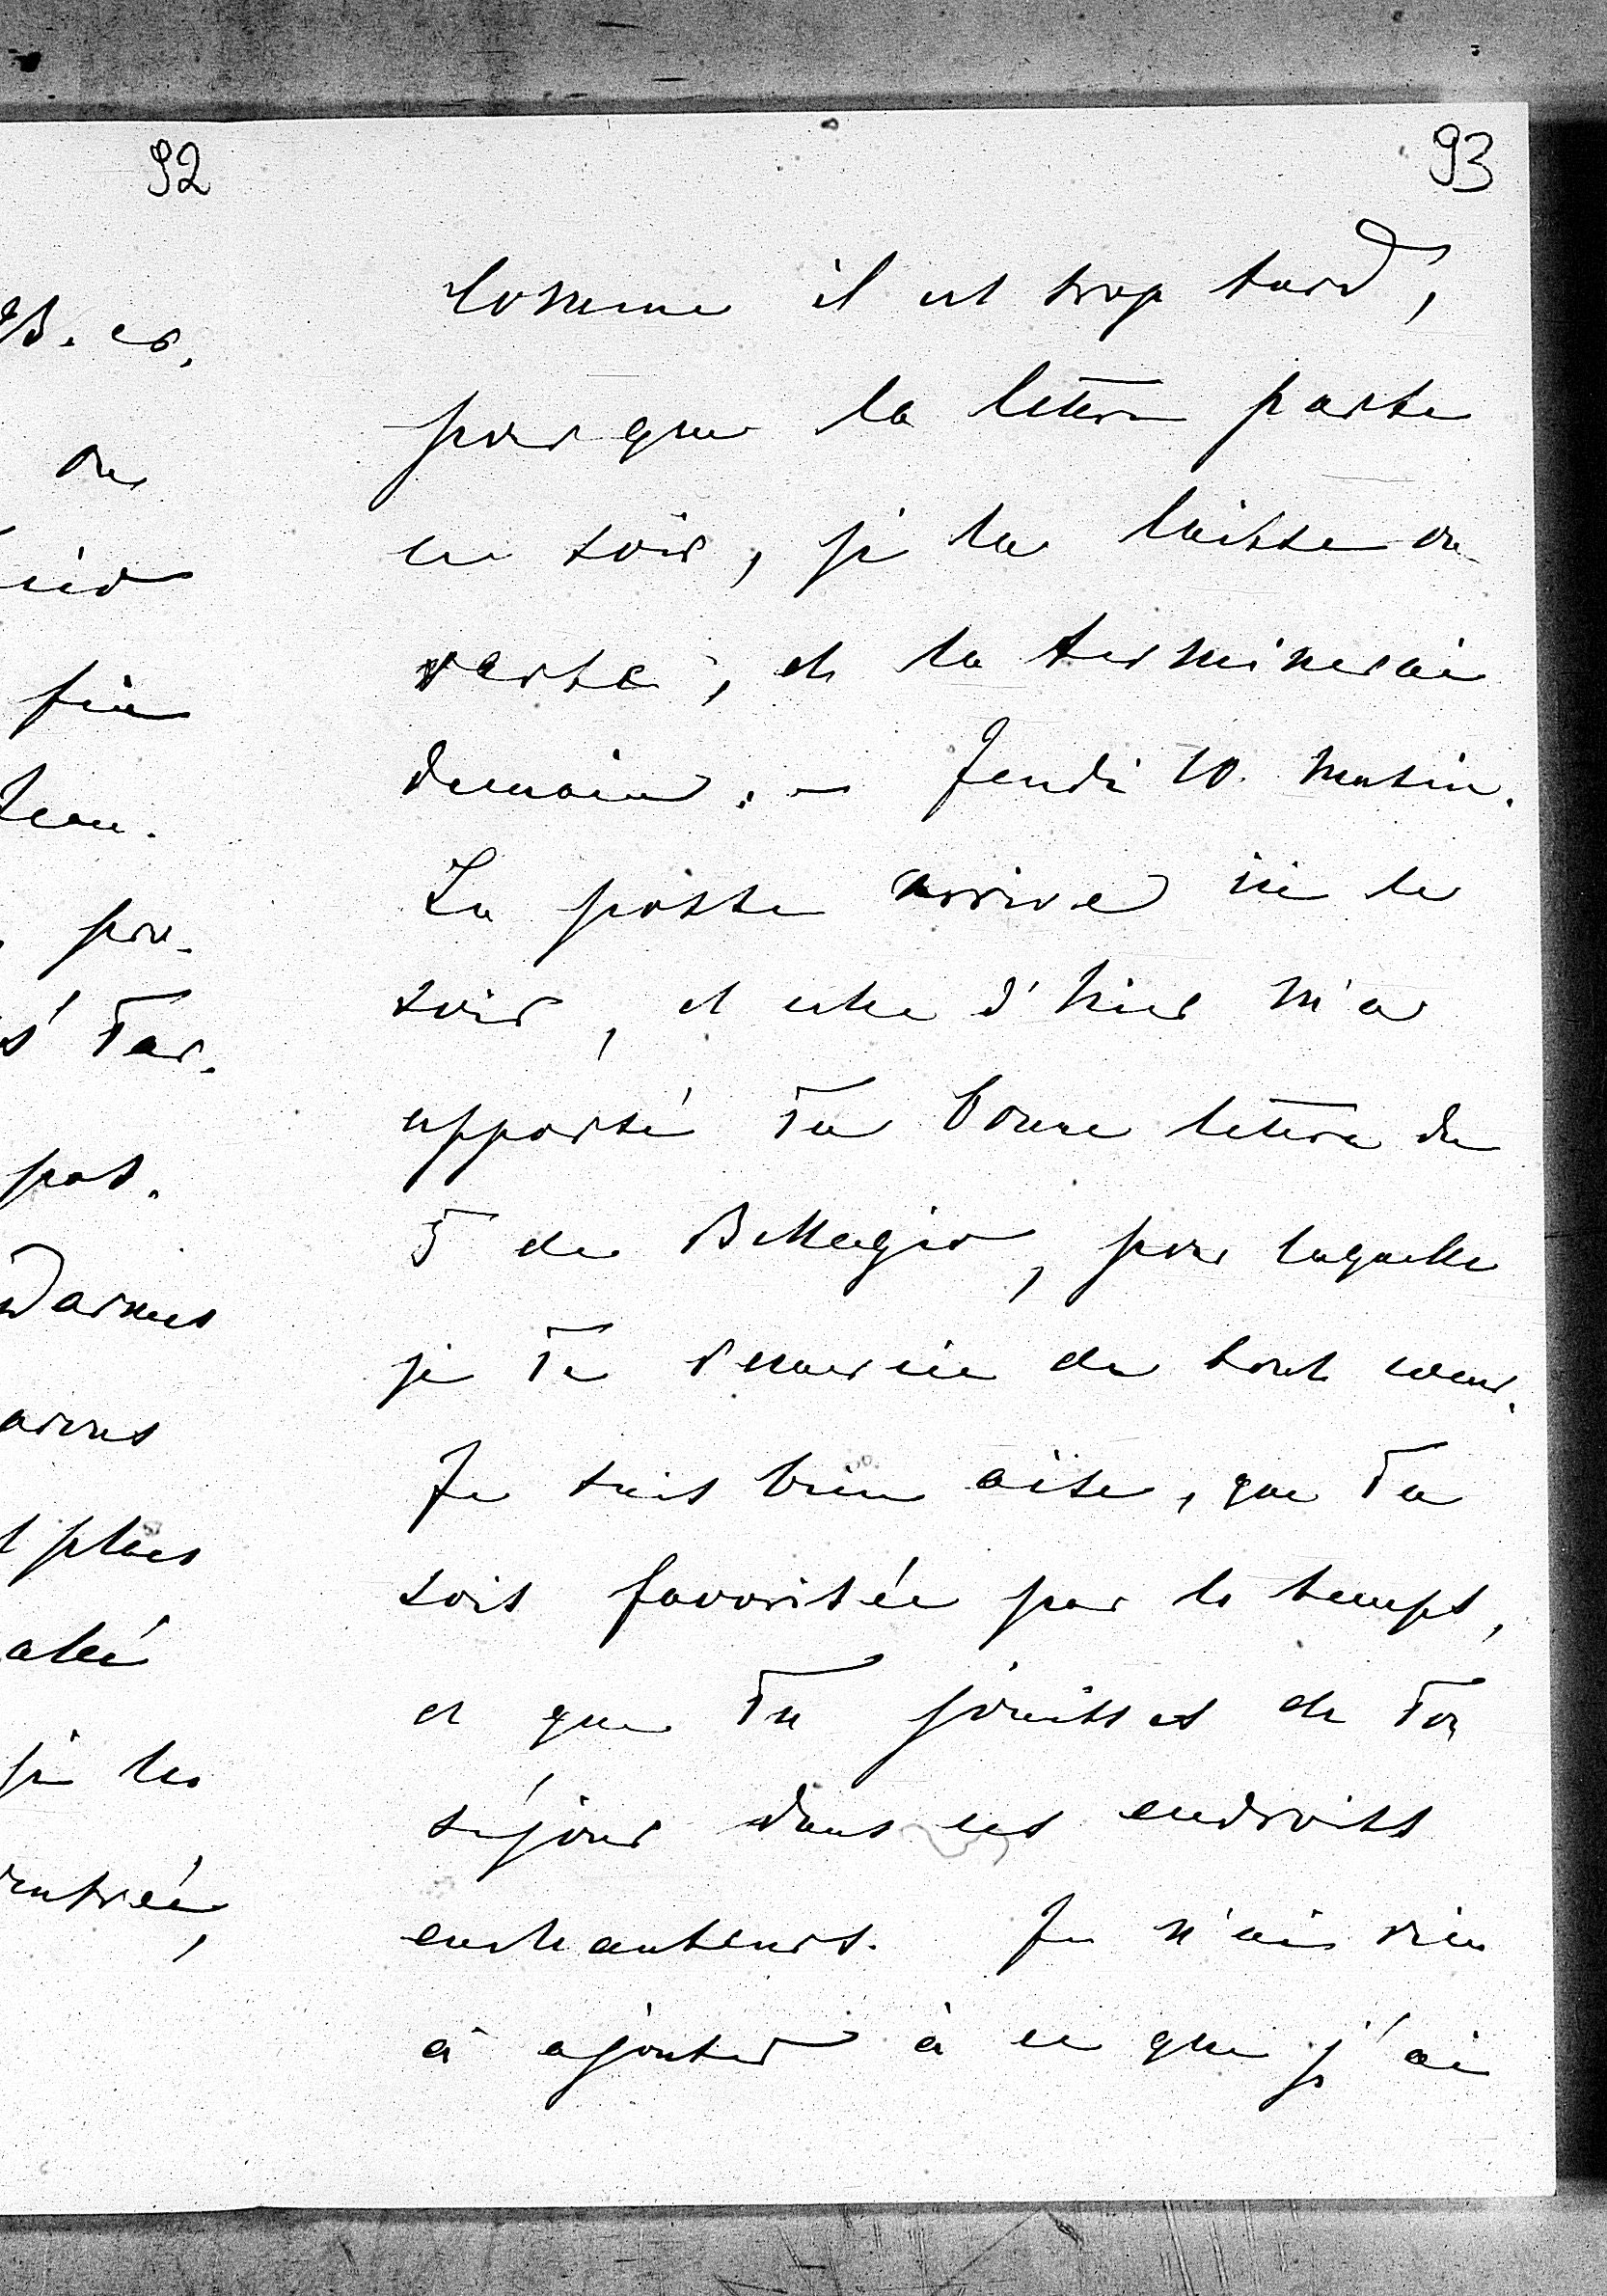 92
93
Comme il est trop tard,
pour que la lettre parte
ce soir, je la laisse ou-
verte, et la terminerai
demain. — Jeudi 10. matin.
La poste arrive ici le
soir, et celle d'hier m'a
apporté Ta bonne lettre du
5 de Bellagio, pour laquelle
je Te remercie de tout coeur.
Je suis bien aise, que Tu
sois favorisée par le temps,
et que Tu jouisses de Ton
séjour dans ces endroits
enchanteurs. Je n'ai rien
à ajouter à ce que j'ai
plus
je les